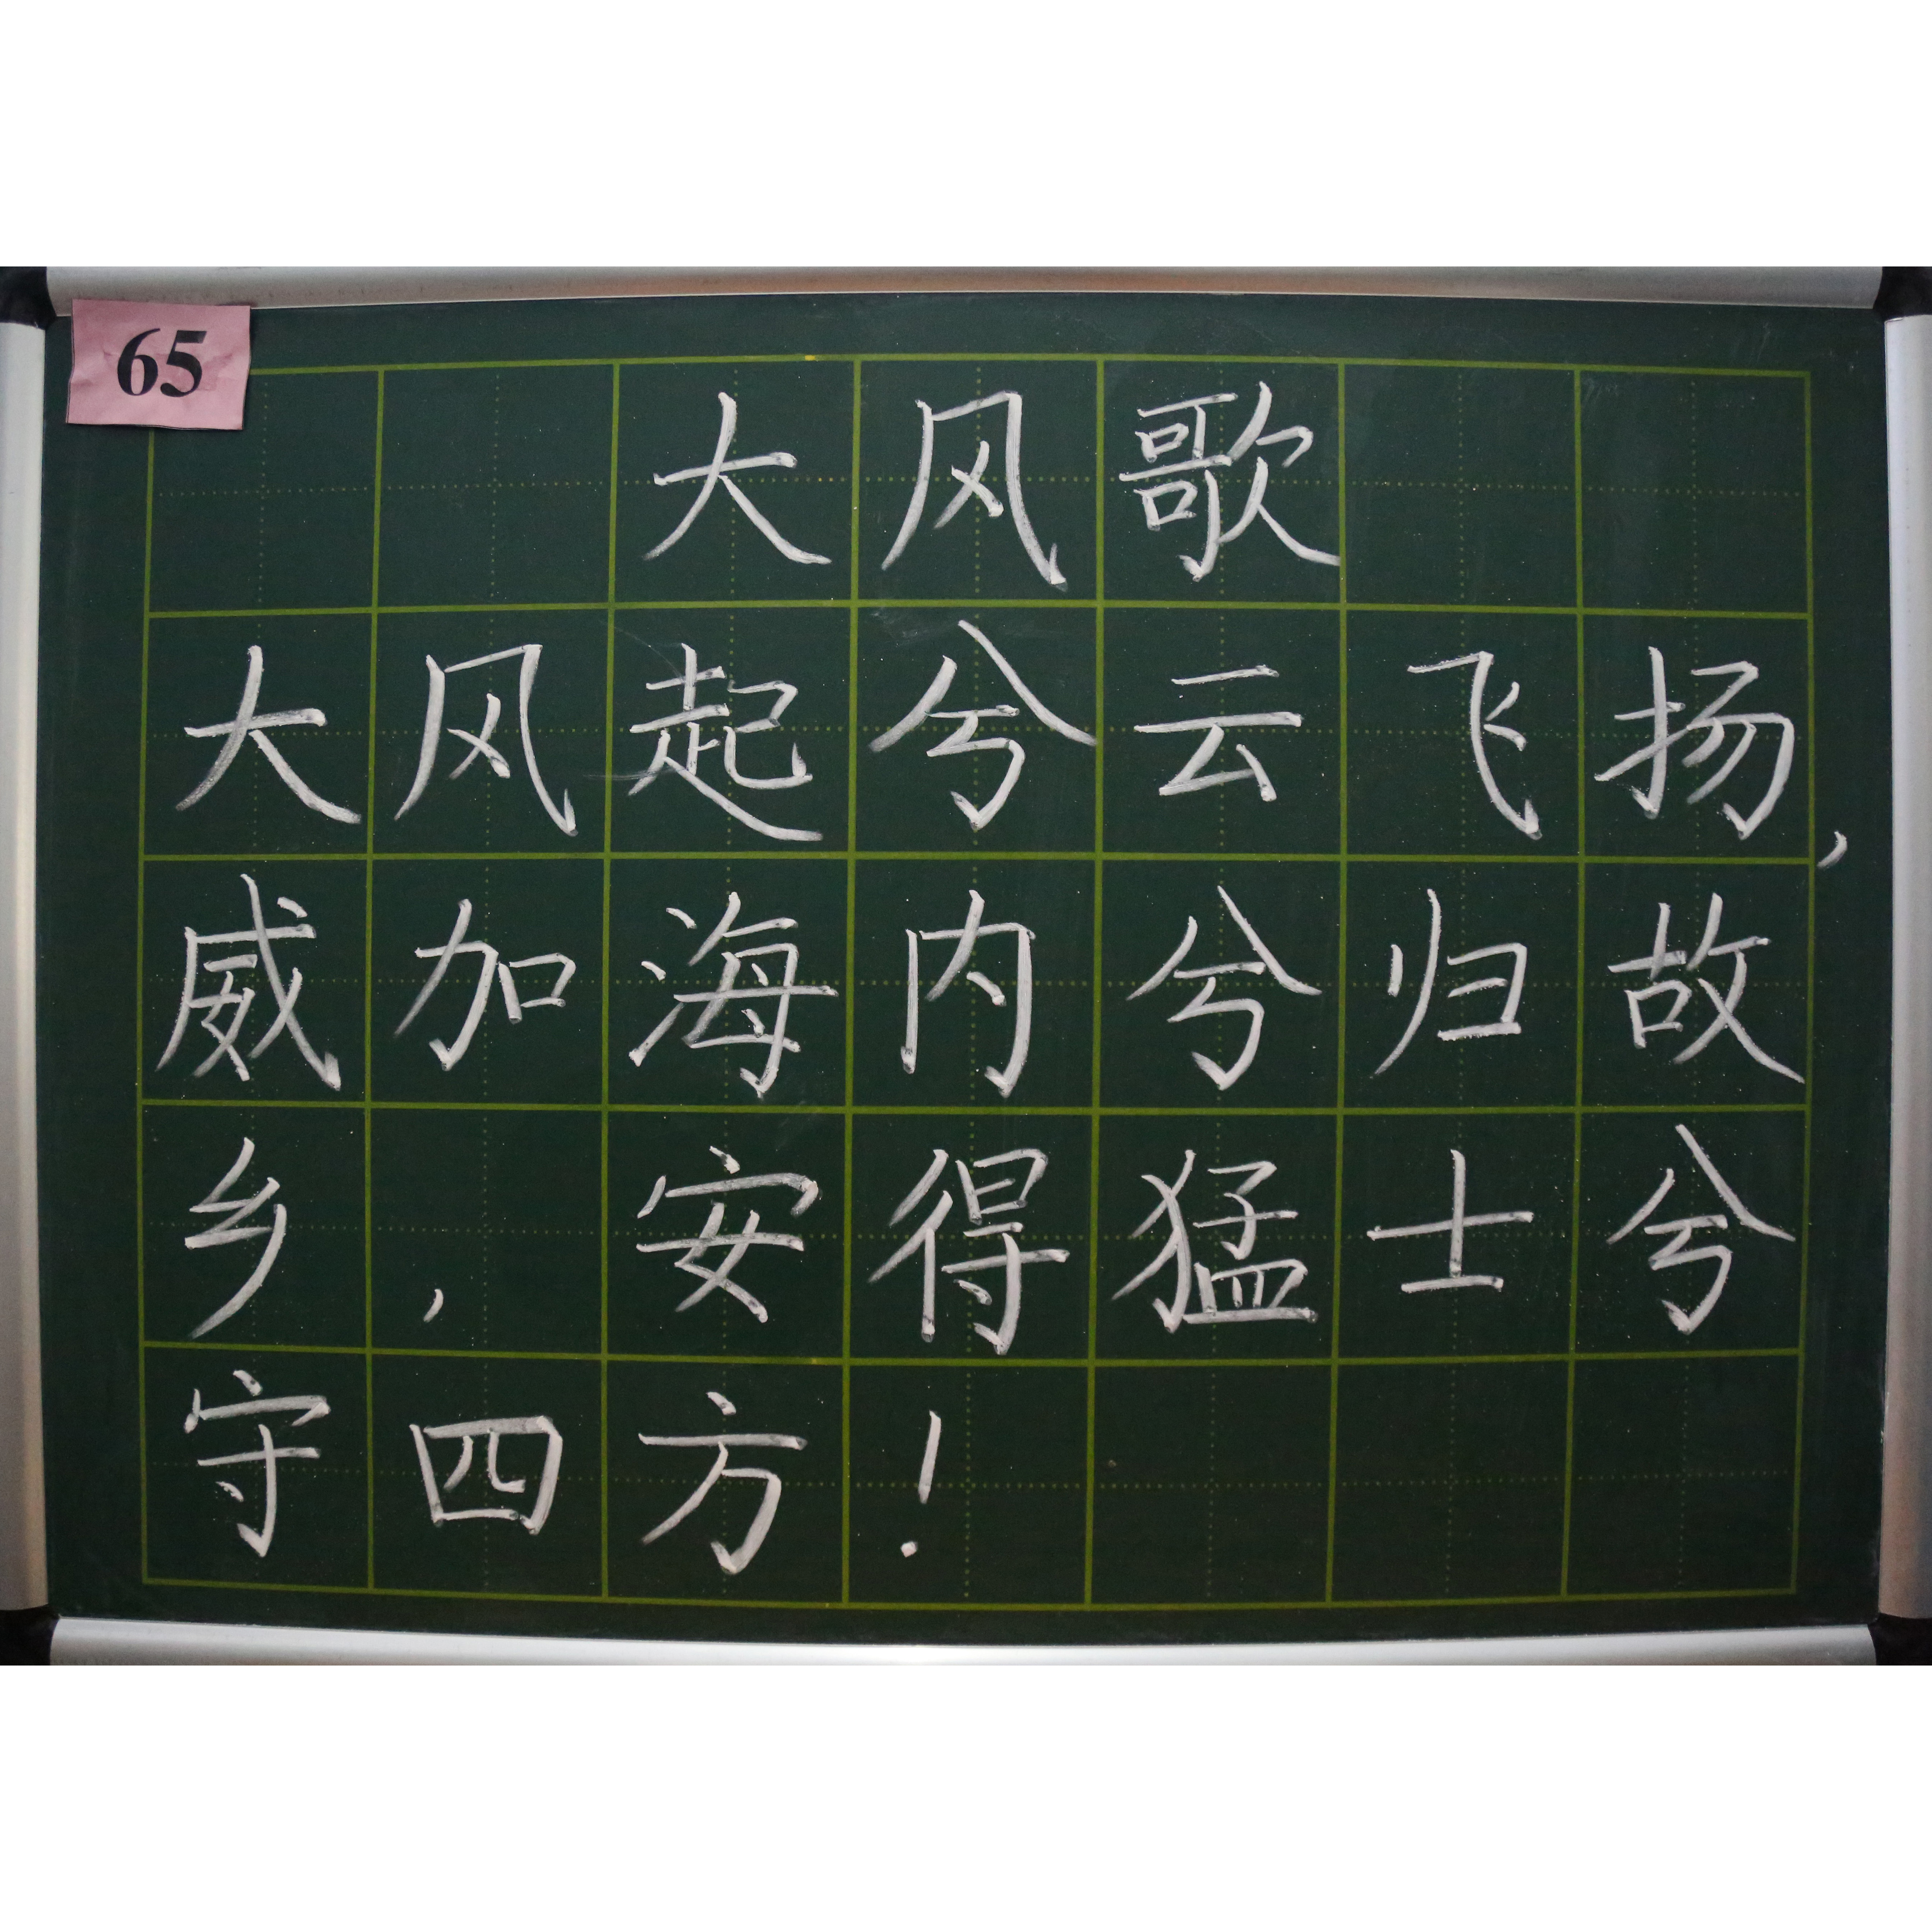 65
大风歌
大风起兮云飞扬,
威加海内兮归故
乡,安得猛士兮
守四方!